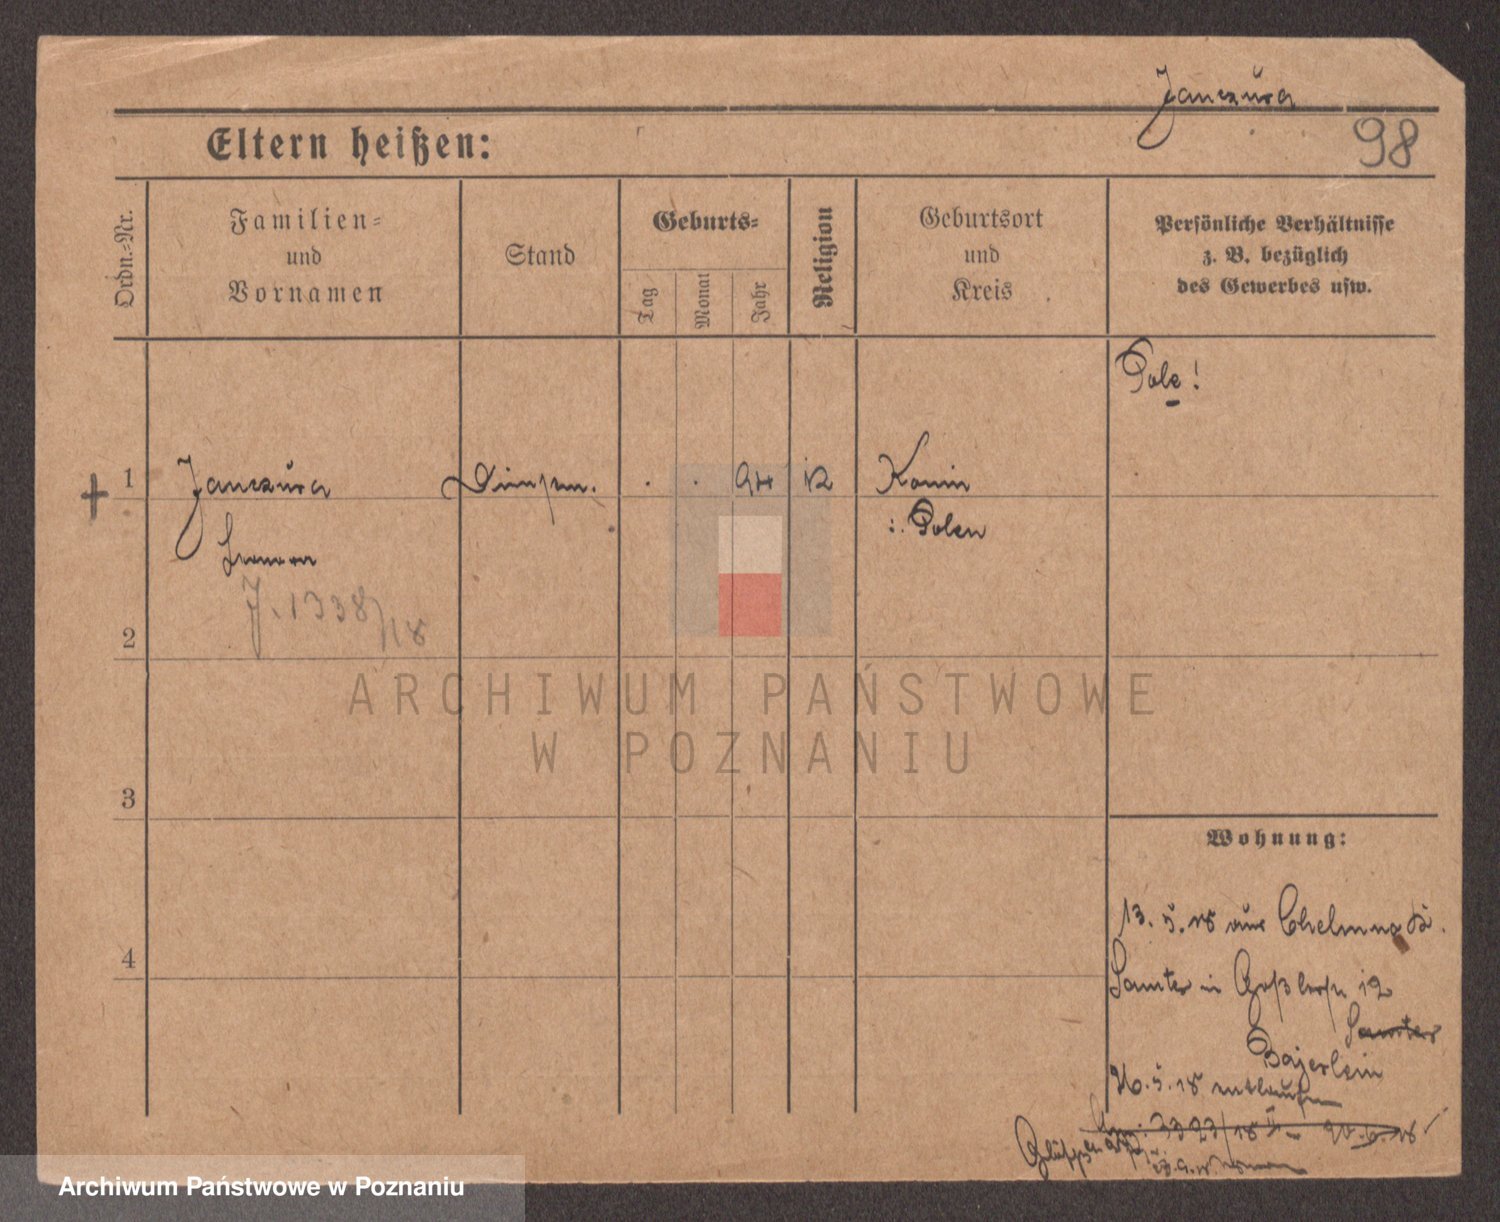 Janczura
98
Eltern heißen:
Ordn.=Nr.
Familien=
und
Vornamen
Stand
Geburts=
Tag
Monat
Jahr
Religion
Geburtsort
und
Kreis
Persönliche Verhältnisse
z. B. bezüglich
des Gewerbes usw.
Pole!
1
Janczura
94
K
Konin
i. Polen
J. 1338/18
2
3
4
Wohnung:
13. 5. 18 aus Chelmno
Samter in 12
Samter
Bajerlein
26. 5. 18 entlaufen
3323/18
ARCHIWUM PAŃSTWOWE
W POZNANIU
Archiwum Państwowe w Poznaniu